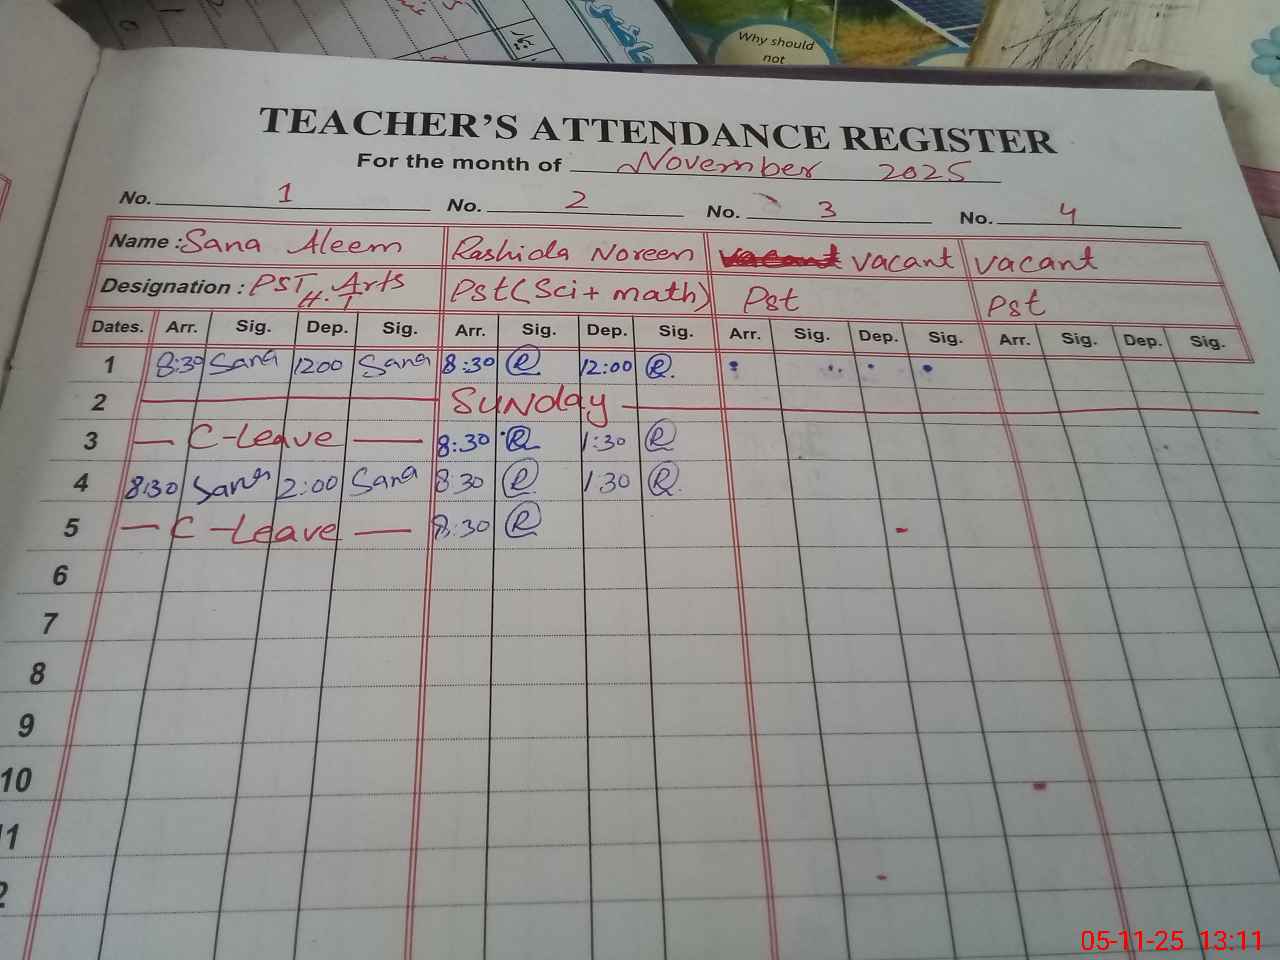 Why should
not
TEACHER'S ATTENDANCE REGISTER
For the month of November 2025
No. 1 No. 2 No. 3 No. 4
Name : Sana Aleem Rashida Noreen vacant vacant vacant
Designation : PST Arts H.T Pst (Sci + math) Pst Pst
Dates. Arr. Sig. Dep. Sig. Arr. Sig. Dep. Sig. Arr. Sig. Dep. Sig. Arr. Sig. Dep. Sig.
1 8:30 Sana 1200 Sana 8:30 R 12:00 R
2 SUNday
3 C-Leave 8:30 R 1:30 R
4 8:30 Sana 2:00 Sana 8:30 R 1:30 R
5 C-Leave 8:30 R
6
7
8
9
10
11
2
05-11-25 13:11